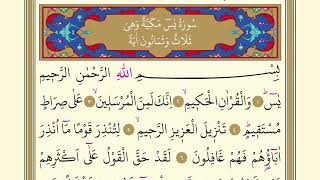 سُورَةُ يٰسٓ مَكِّيَّةٌ وَهِيَ
ثَلَاثٌ وَثَمَانُونَ اٰيَةً
بِسْــــمِ اللّٰهِ الرَّحْمٰنِ الرَّحِيمِ
يٰسٓ ۝١ وَالْقُرْاٰنِ الْحَكِيمِ ۝٢ اِنَّكَ لَمِنَ الْمُرْسَلِينَ ۝٣ عَلٰى صِرَاطٍ
مُسْتَقِيمٍ ۝٤ تَنْزِيلَ الْعَزِيزِ الرَّحِيمِ ۝٥ لِتُنْذِرَ قَوْمًا مَٓا اُنْذِرَ
اٰبَٓاؤُ۬هُمْ فَهُمْ غَافِلُونَ ۝٦ لَقَدْ حَقَّ الْقَوْلُ عَلٰٓى اَكْثَرِهِمْ